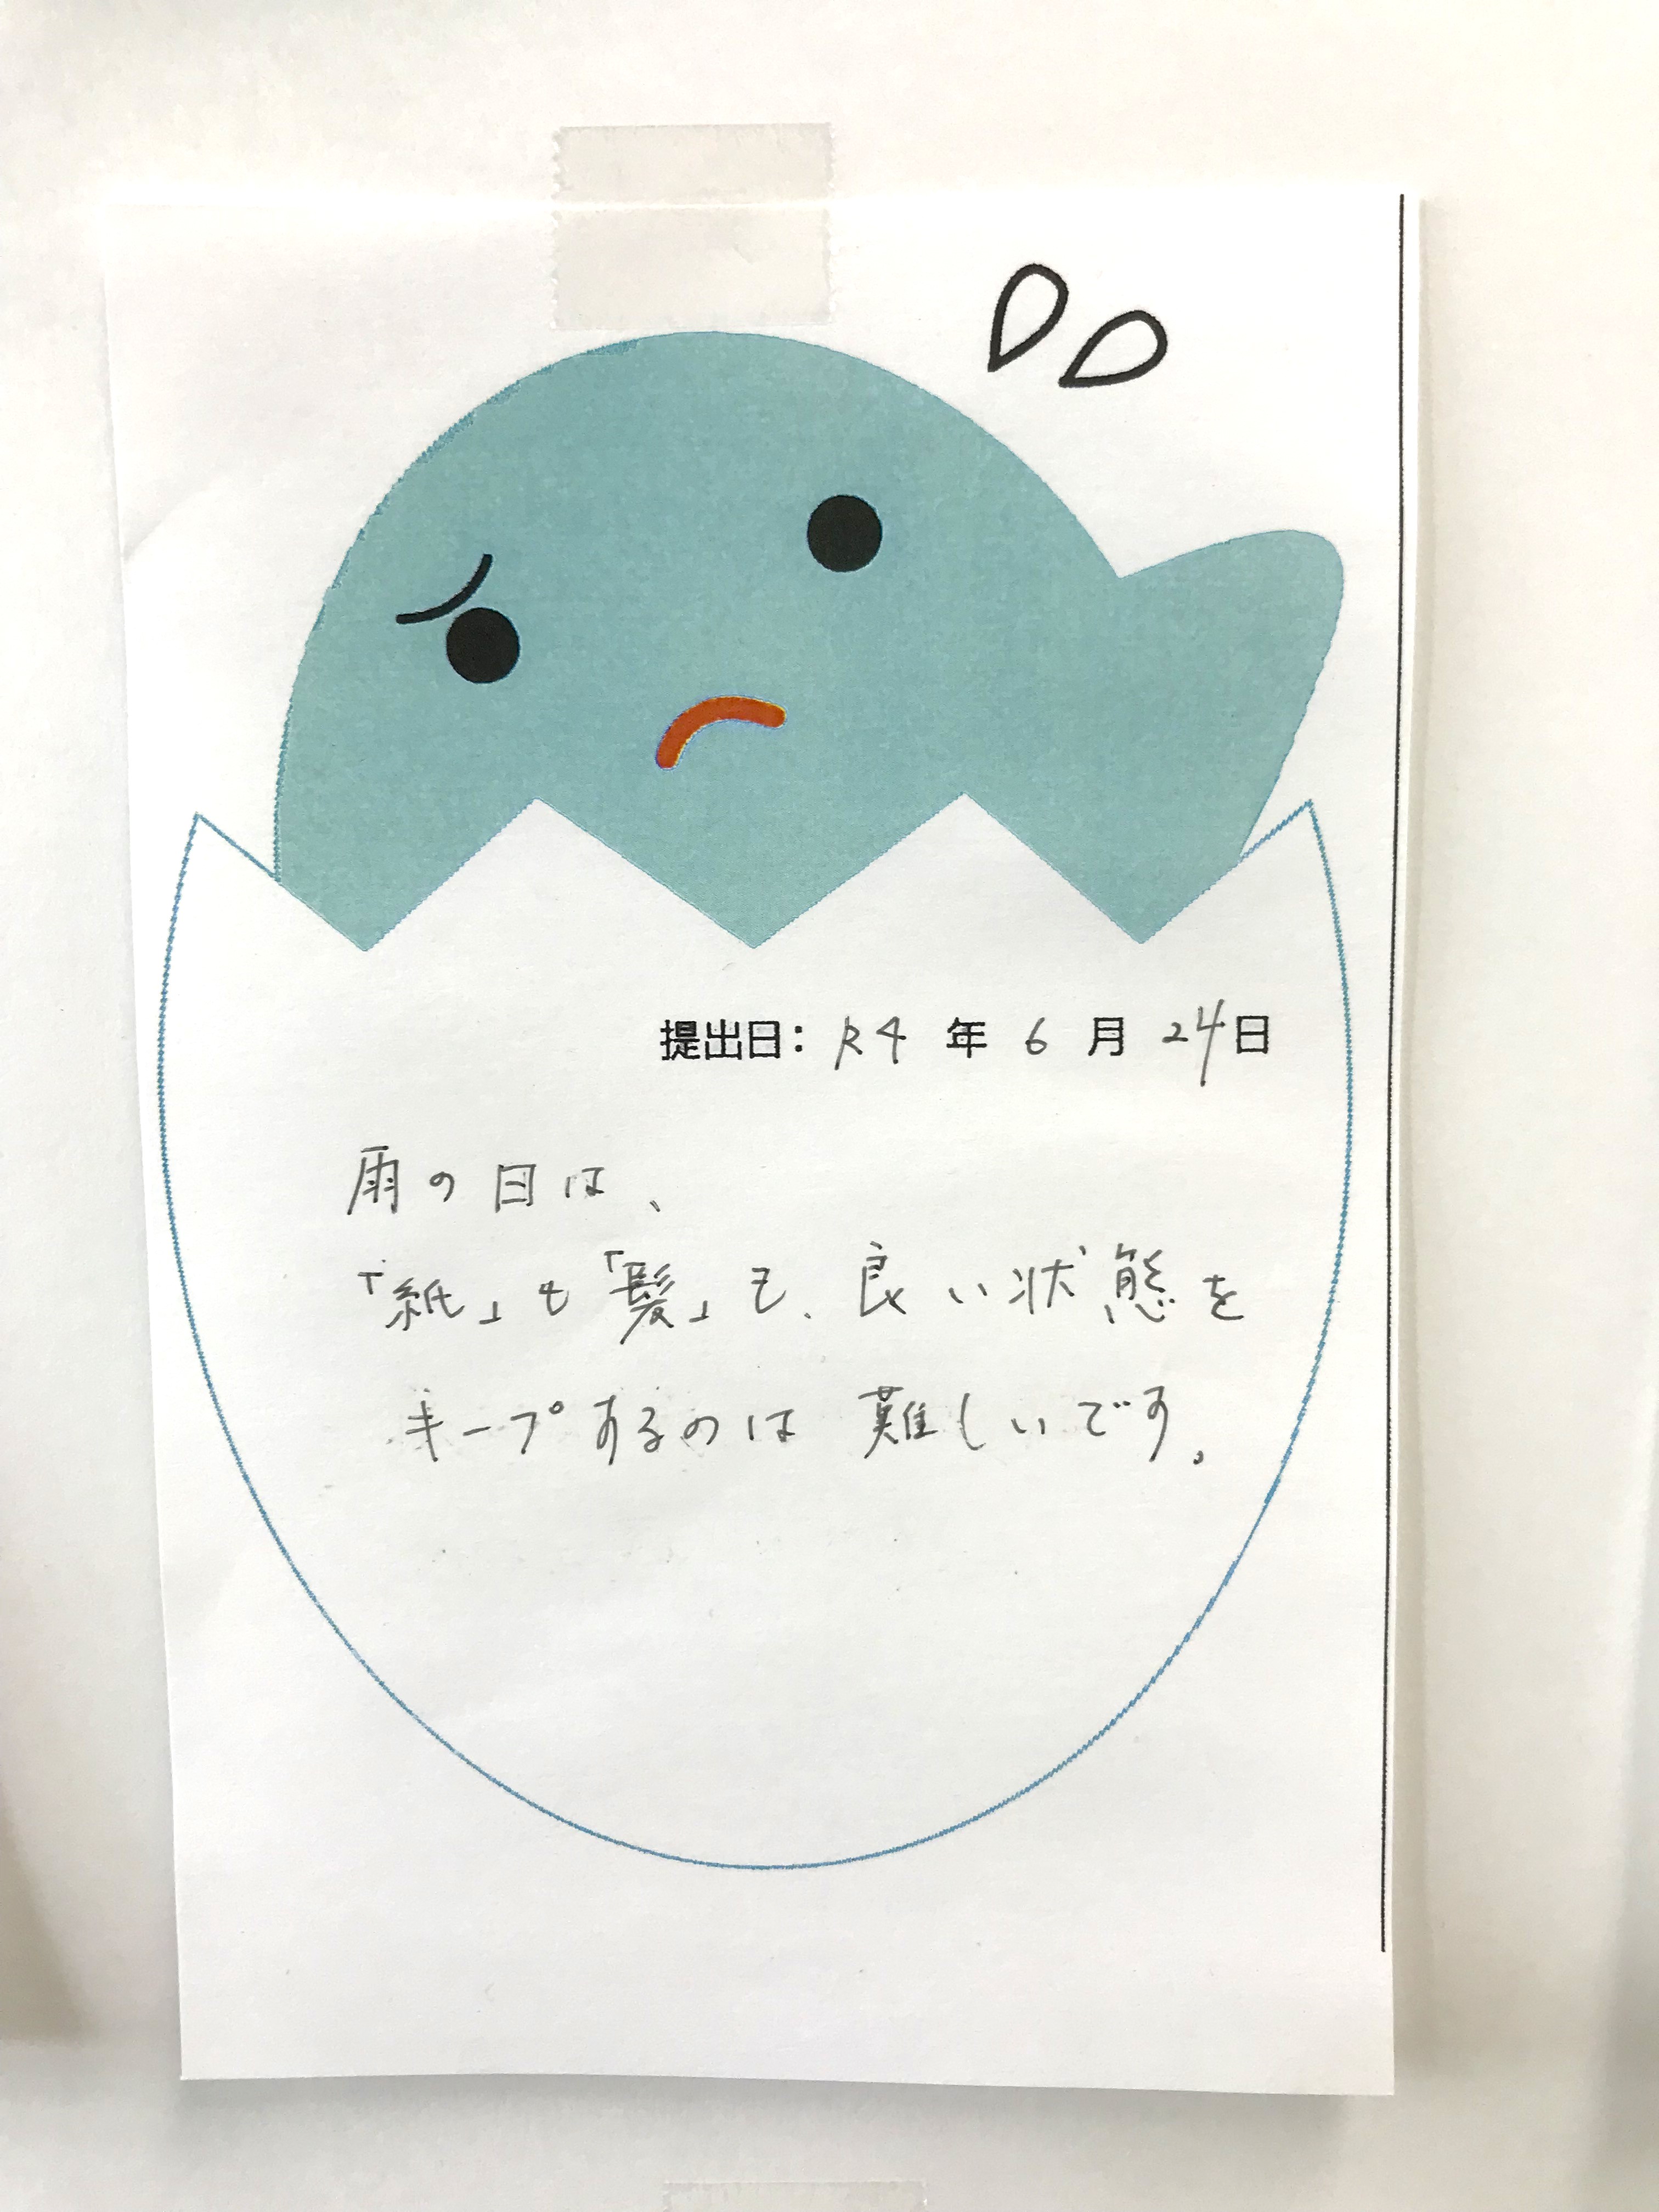 提出日：R4 年 6 月 24日
雨の日は、
「紙」も「髪」も、良い状態を
キープするのは 難しいです。